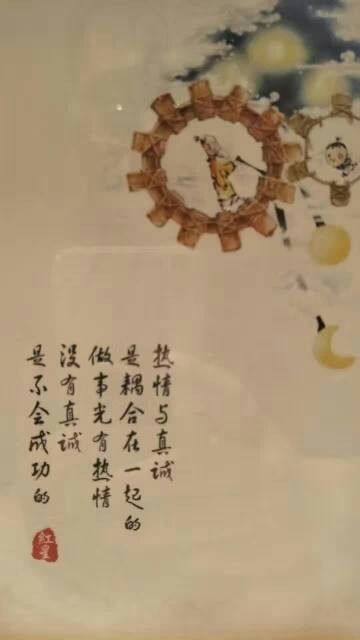 热情与真诚
是耦合在一起的
做事光有热情
没有真诚
是不会成功的
红星